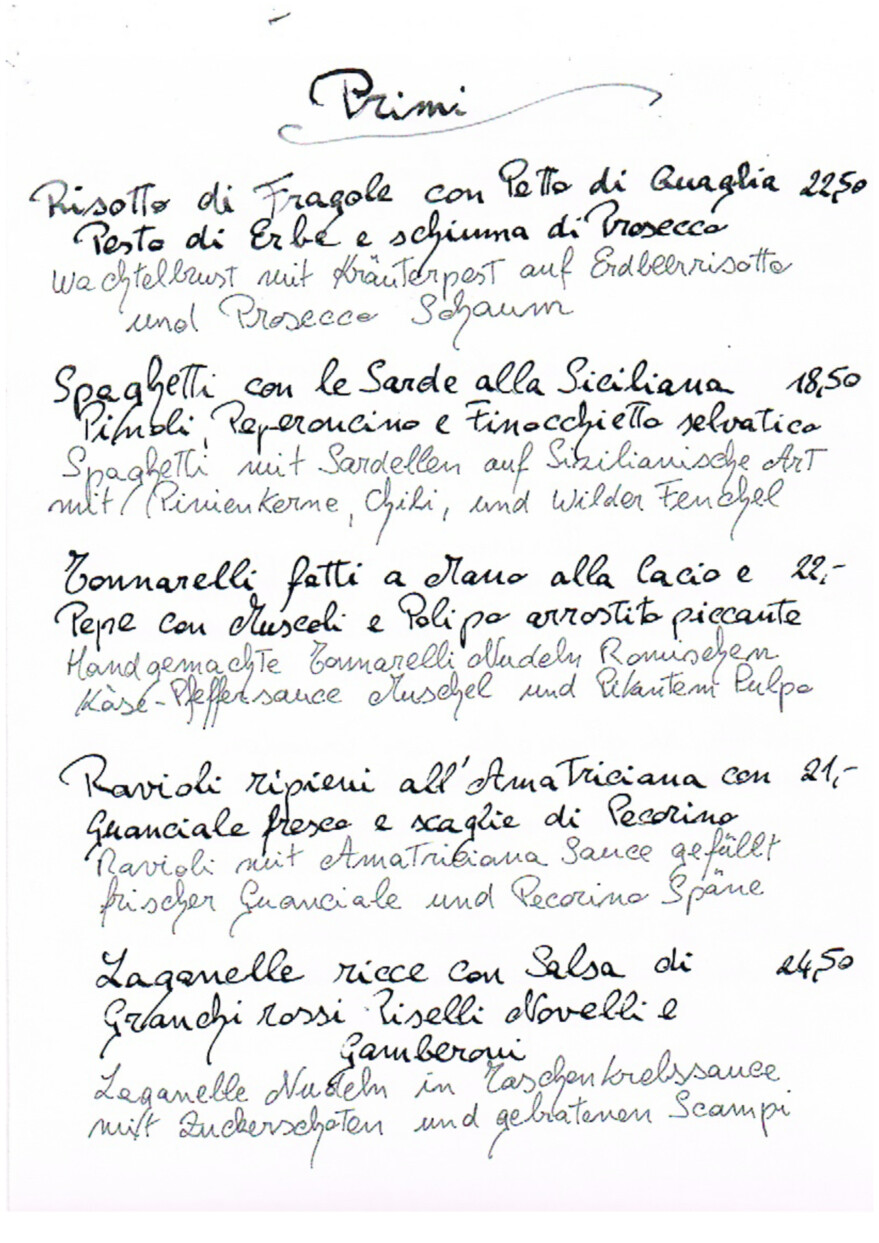 Primi
Risotto di Fragole con Petto di Quaglia 22,50
Pesto di Erbe e schiuma di Prosecco
Wachtelbrust mit Kräuterpest auf Erdbeerrisotto
und Prosecco Schaum
Spaghetti con le Sarde alla Siciliana 18,50
Pinoli, Peperoncino e Finocchietto selvatico
Spaghetti mit Sardellen auf Sizilianische Art
mit Pinienkerne, Chili, und Wilder Fenchel
Tonnarelli fatti a Mano alla Cacio e 22,-
Pepe con Muscoli e Polipo arrostito piccante
Handgemachte Tonnarelli Nudeln Romischem
Käse-Pfeffersauce Muschel und Pikantem Pulpo
Ravioli ripieni all'Amatriciana con 21,-
Guanciale fresco e scaglie di Pecorino
Ravioli mit Amatriciana Sauce gefüllt
frischer Guanciale und Pecorino Späne
Laganelle ricce con Salsa di 24,50
Granchi rossi Piselli Novelli e
Gamberoni
Laganelle Nudeln in Taschenkrebssauce
mit Zuckerschoten und gebratenen Scampi